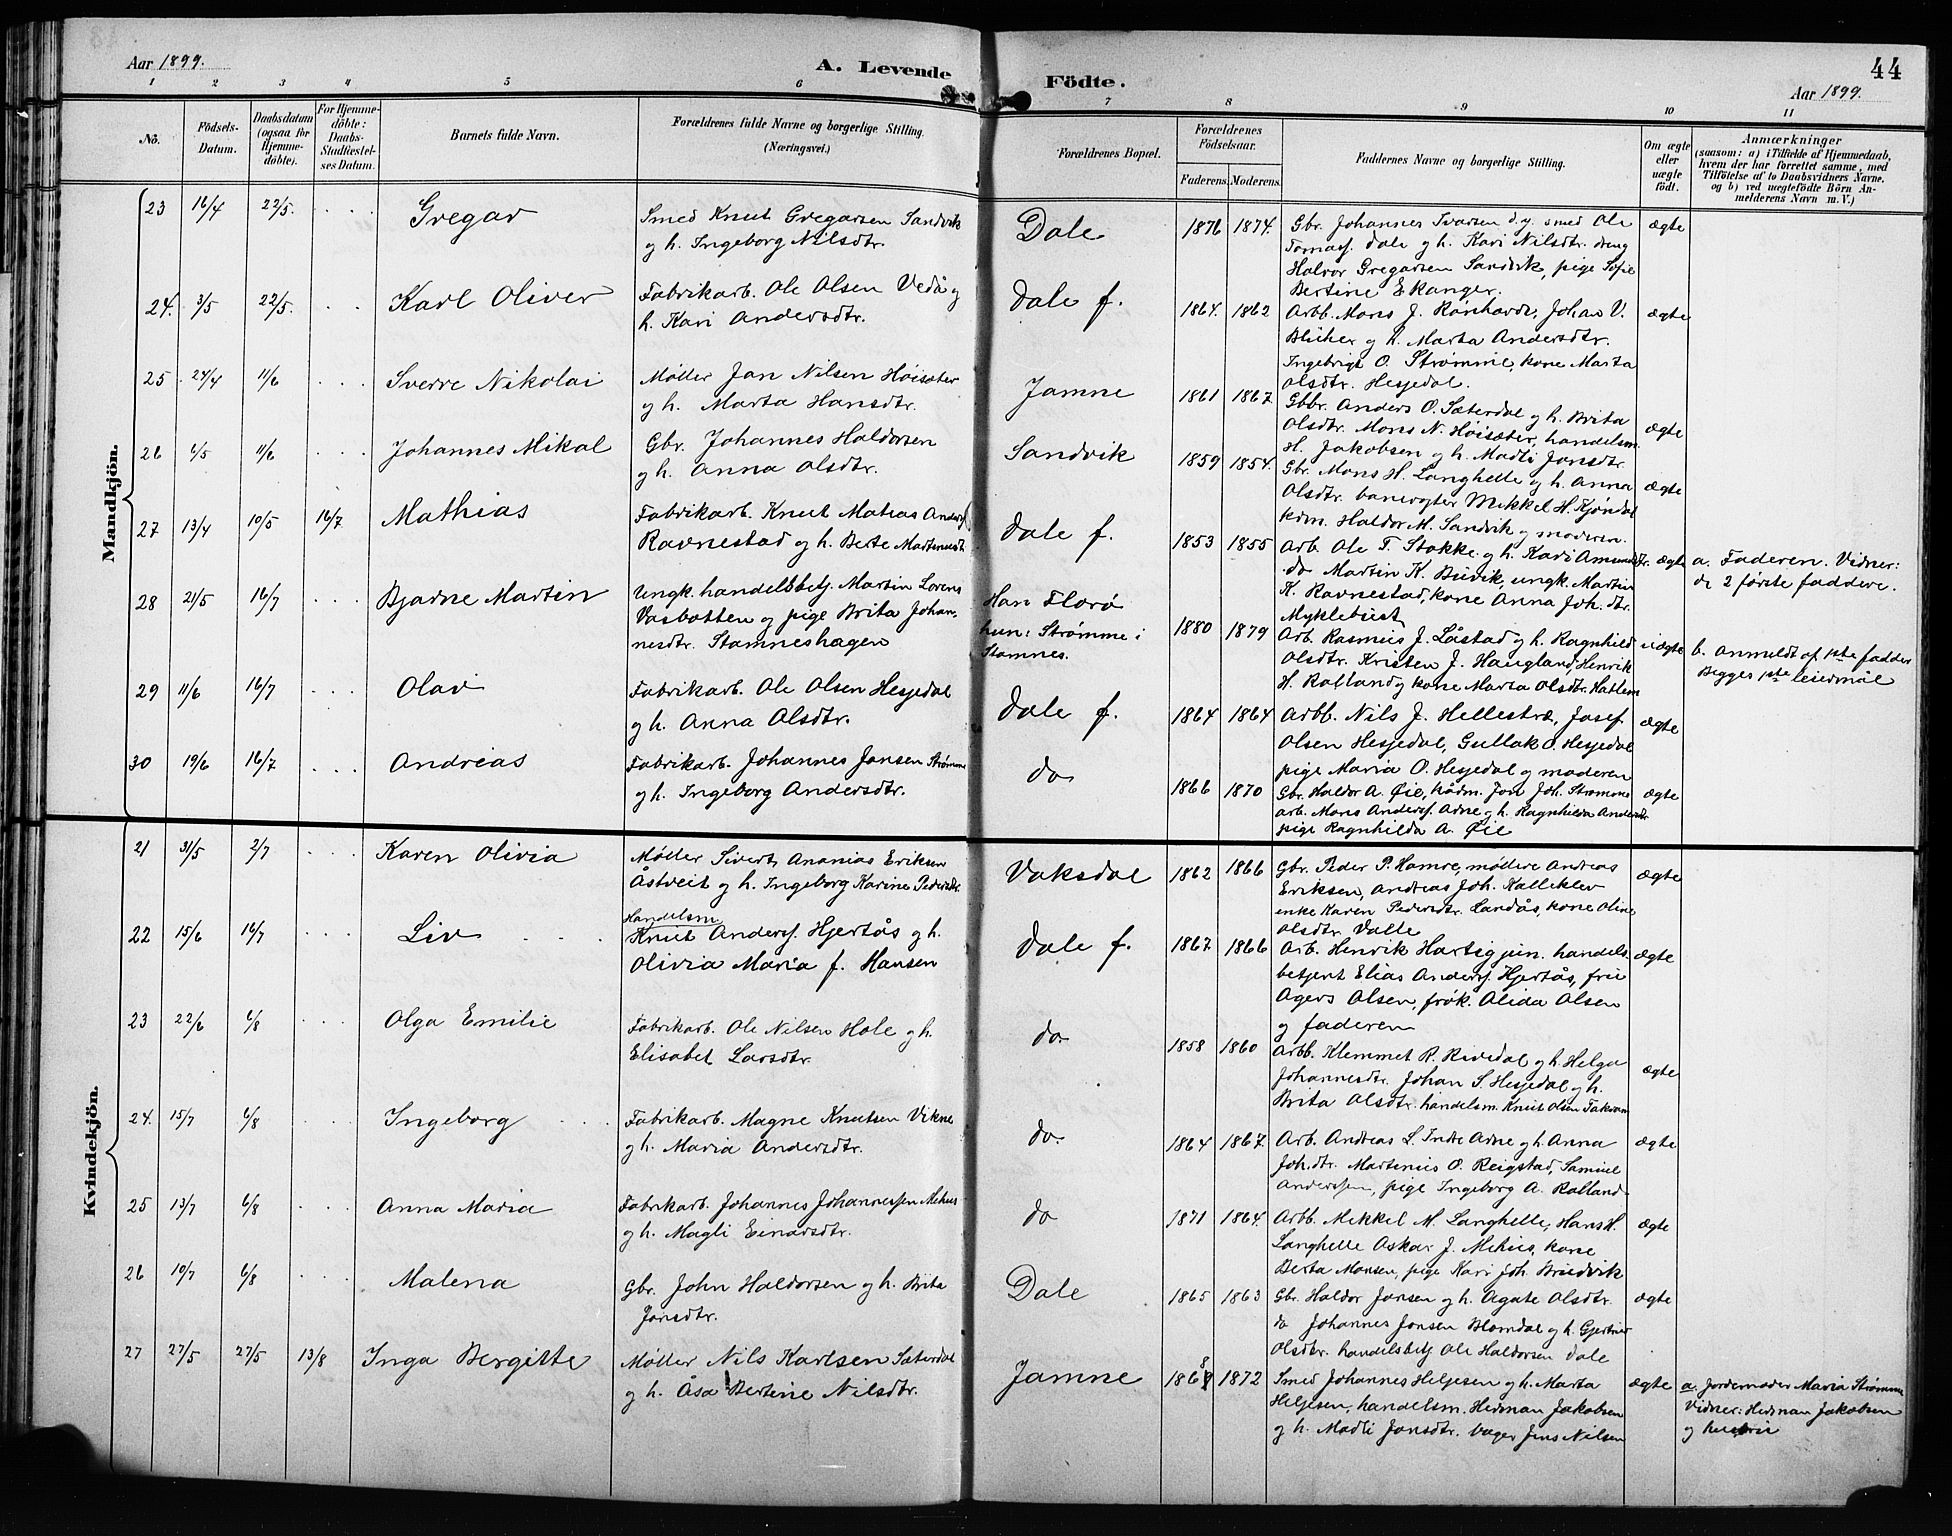 Aar 1899.
A. Levende Födte.
44
Aar 1899.
1 2 3 4 5 6 7 8 9 10 11
No.
Födsels-Datum.
Daabsdatum (ogsaa for Hjemmedöbte).
For Hjemmedöbte: Daabs-Stadfæstelses Datum.
Barnets fulde Navn.
Forældrenes fulde Navne og borgerlige Stilling.
(Næringsvei.)
Forældrenes Bopæl.
Forældrenes Födselsaar.
Faderens. Moderens.
Faddernes Navne og borgerlige Stilling.
Om ægte eller uægte födt.
Anmærkninger
(saasom: a) i Tilfælde af Hjemmedaab, hvem der har forrettet samme, med Tilföielse af to Daabsvidners Navne, og b) ved uegtefödte Börn Anmelderens Navn m. V.)
Mandkjön.
23 16/4 22/5. Gregar
Smed Knut Gregarsen Sandvik
y h. Ingeborg Nilsdtr.
Dale 1876 1874.
Gbr. Johannes Ivarsen d.y. smed Ole
Tomass. Dale y h. Kari Nilsdtr. dreng
Halvor Gregarsen Sandvik, pige Sofie
Bertine Ekanger.
ægte
24. 3/5 22/5. Karl Oliver
Fabrikarb. Ole Olsen Vedå y
h. Kari Andersdtr.
Dale f. 1864. 1862
Arbb. Mons J. Rönhovde, Johan V.
Blücher y h. Marta Andersdtr.
Ingebrigt O. Strømme, kone Marta
Olsdtr. Hesjedal.
ægte
25 24/4 11/6 Sverre Nikolai
Møller Jan Nilsen Höisæter
y h. Marta Hansdtr.
Jamne 1861 1867
Gbbr. Anders O. Sæterdal y h. Brita
Olsdtr. Mons N. Höisæter, handelsm.
H. Jakobsen y h. Madli Jonsdtr.
ægte
26 6/5 11/6 Johannes Mikal
Gbr. Johannes Haldorsen
y h. Anna Olsdtr.
Sandvik 1859 1854.
Gbr. Mons H. Langhelle y h. Anna
Olsdtr. banevogter Mikkel H. Kjöndal
kdm. Haldor M. Sandvik y moderen.
ægte
27 13/4 10/5 16/7 Mathias
Fabrikarb. Knut Matias Anders
Ravnestad y h. Berte Martinusdt
Dale f. 1853 1855
Arb. Ole T. Stokke y h. Kari Amundsdtr.
do Martin K. Buvik, ungk. Martin
K. Ravnestad, kone Anna Joh.dtr.
Myklebust
ægte
a. Faderen. Vidner:
de 2 första faddere.
28 21/5 16/7 Bjarne Martin
Ungk. handelsbetj. Martin Lorens
Vasbotten y pige Brita Johan-
nesdtr. Stamneshagen
Han Florö
hun: Strømme i
Stamnes.
1880 1879
Arb. Rasmus J. Låstad y h. Ragnhild
Olsdtr. Kristen J. Haugland, Henrik
H. Rolland y kone Marta Olsdtr. Hatlem
uægte
b. anmeldt af 1ste fadder
Begges 1ste leiermål
29 11/6 16/7 Olav
Fabrikarb. Ole Olsen Hesjedal
y h. Anna Olsdtr.
Dale f. 1864 1864
Arbb. Nils J. Hellestræ, Josef
Olsen Hesjedal, Gullak O. Hesjedal
pige Maria O. Hesjedal y moderen
ægte
30 19/6 16/7 Andreas
Fabrikarb. Johannes Jonsen Strømme
y h. Ingeborg Andersdtr.
do 1866 1870
Gbr. Haldor A. Øie, kådm. Jon Joh. Strømme
arb. Mons Anderss. Arne y h. Ragnhilda Andersdtr.
pige Ragnhilda A. Øie
ægte
Kvindekjön.
21 31/5 2/7 Karen Olivia
Møller Sivert Ananias Eriksen
Åstveit y h. Ingeborg Karine Pedersdtr.
Vaksdal 1862 1866
Gbr. Peder P. Hamre, møllere Andreas
Eriksen, Andreas Joh. Kalleklev
enke Karen Pedersdtr. Landås, kone Oline
Olsdtr. Valle
ægte
22 15/6 16/7 Liv
Handelsm
Knut Anderss. Hjertås y h.
Olivia Maria f. Hansen
Dale f. 1867 1866
Arb. Henrik Hartig jun. handels-
betjent Elias Anderss. Hjertås, fru
Agnes Olsen, frök. Alida Olsen
y faderen
ægte
23 22/6 6/8 Olga Emilie
Fabrikarb. Ole Nilsen Hole y h.
Elisabet Larsdtr.
do 1858 1860
Arbb. Klemmet R. Rivedal y h. Helga
Johannesdtr. Johan S. Hesjedal y h.
Brita Olsdtr. handelsm. Knut Olsen Fakvam
ægte
24. 15/7 6/8 Ingeborg
Fabrikarb. Magne Knutsen Vikne
y h. Maria Andersdtr.
do. 1864 1867.
Arb. Andreas L. Indre Arne y h. Anna
Joh.dtr. Martinus O. Reigstad, Samuel
Anderssen, pige Ingeborg A. Rolland.
ægte
25 13/7 6/8 Anna Maria
Fabrikarb. Johannes Johannessen Mehus
y h. Magli Einarsdtr.
do 1871 1864.
Arbb. Mikkel M. Langhelle, Hans H.
Langhelle Askar J. Mehus, kone
Berta Monsen, pige Kari Joh. Bruvik
ægte
26 10/7 6/8 Malena
Gbr. John Haldorsen y h. Brita
Jonsdtr.
Dale 1865 1863
Gbr. Haldor Jonsen y h. Agate Olsdtr.
do Johannes Jonsen Blomdal y h. Gjertrud
Olsdtr. handelsbetj Ole Haldorsen Dale
ægte
27 27/5 27/5 13/8 Inga Bergitte
Møller Nils Karlsen Sæterdal
y h. Åsa Bertine Nilsdtr.
Jamne 1868 1872
Smed Johannes Heljesen y h. Marta
Heljesen, handelsm. Herman Jakobsen
y h. Madli Jonsdtr. bager Jens Nilsen
ægte
a. Jordemoder Maria Strømme
Vidner: Herman Jakobsen
y hustru